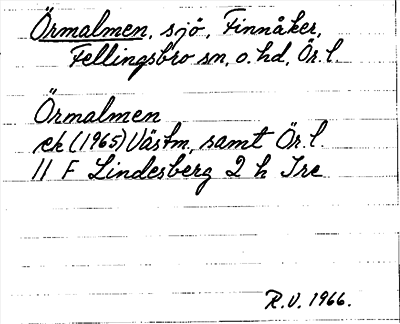 Örmalmen, sjö, Finnåker,
Fellingsbro sn, o. hd, Ör. l.
Örmalmen
ek (1965) Västm, samt Ör. l.
11 F Lindesberg 2 h Tre
R.V. 1966.